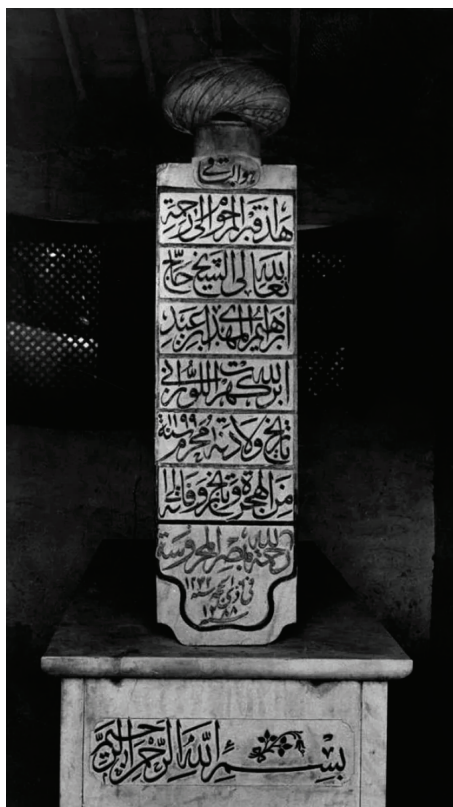 هو الباقي
هذا قبر المرحوم الى رحمة
الله تعالى الشيخ حاج
ابراهيم المهدى ابن عبد
الله بركهرت اللوزاني
تاريخ ولادته محرم سنة ١١٩٩
من الهجرة وتاريخ وفاته الى
رحمة الله بمصر المحروسة
في ذي الحجة سنة ١٢٣٢
سنة ١٢٨٨
بسم الله الرحمن الرحيم